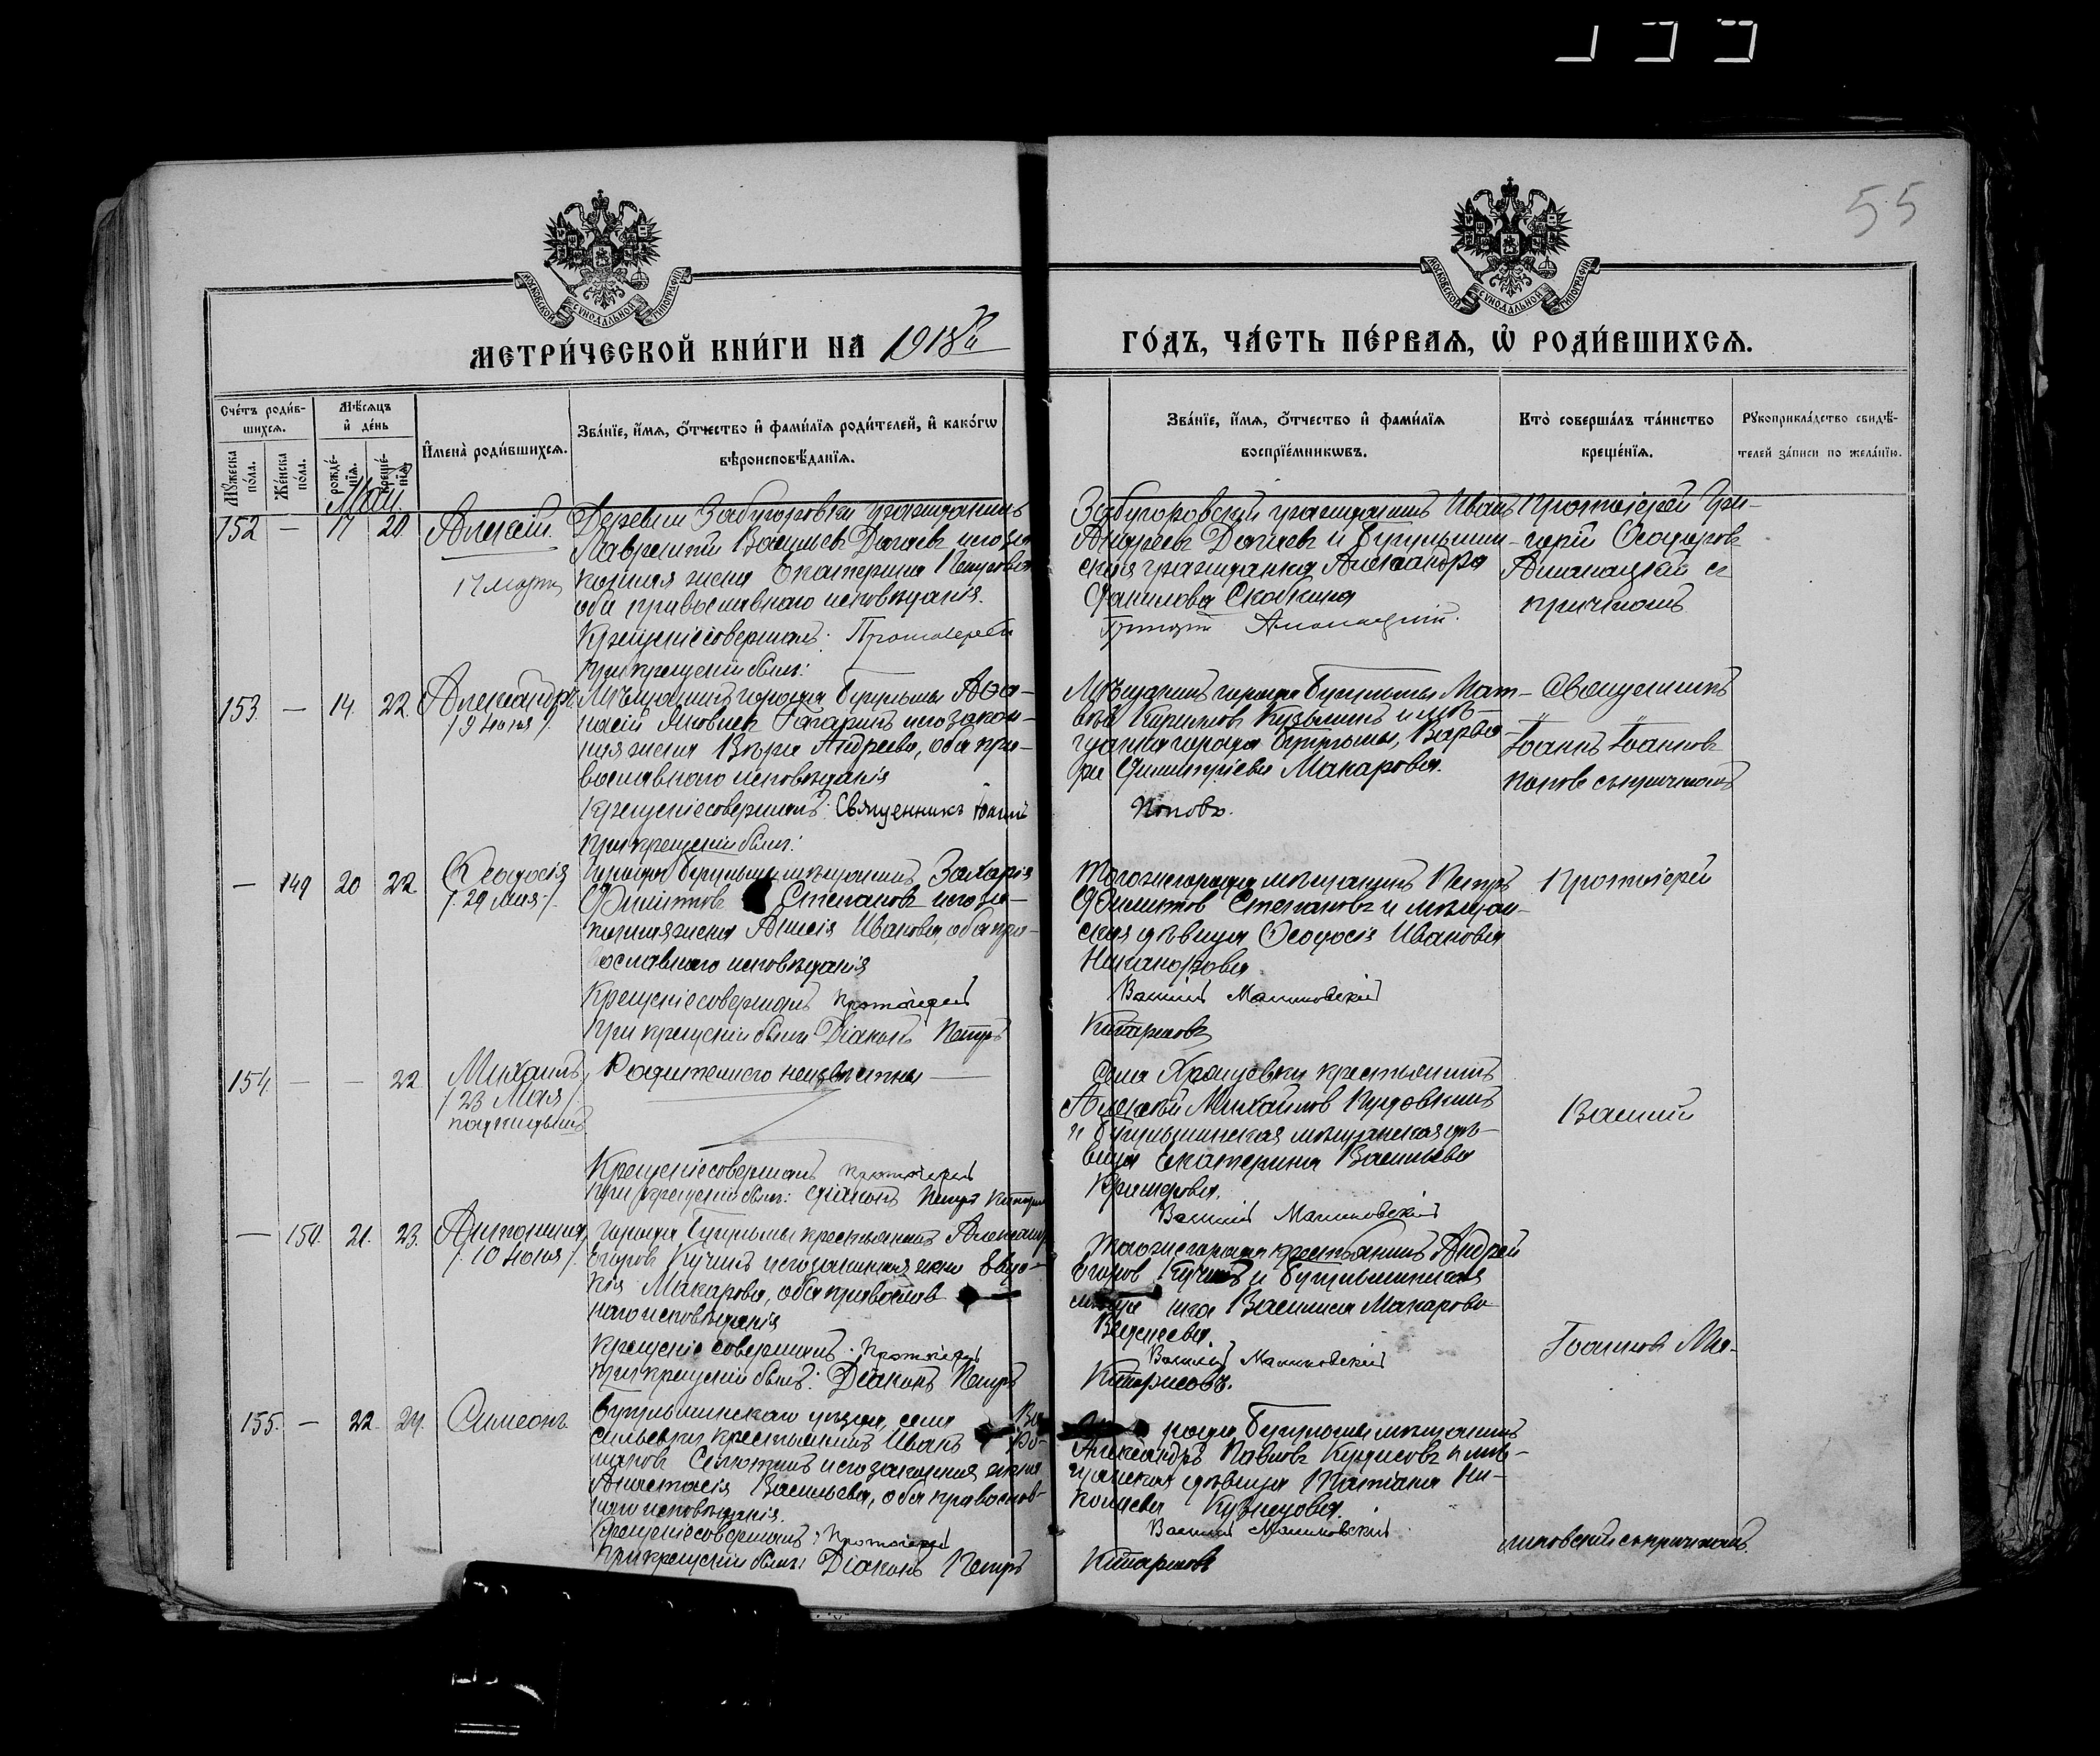 55
МОСКОВСКОЙ СУНОДАЛЬНОЙ ТИПОГРАФІИ
МОСКОВСКОЙ СУНОДАЛЬНОЙ ТИПОГРАФІИ
МЕТРИ́ЧЕСКОЙ КНИ́ГИ НА 1918й ГО́ДЪ, ЧА́СТЬ ПЕ́РВАѦ, Ѡ҆ РОДИ́ВШИХСѦ.
Сче́тъ роди́в-
шихсѧ.
Мѣ́сѧцъ
и҆ де́нь
Мꙋ́жеска по́ла.
Же́нска по́ла.
рожде́-
нїѧ.
креще́-
нїѧ.
И҆мена̀ роди́вшихсѧ.
Зва́нїе, и҆́мѧ, ѻ҆́тчество и҆ фами́лїѧ роди́телей, и҆ како́гѡ
вѣроисповѣ́данїѧ.
Зва́нїе, и҆́мѧ, ѻ҆́тчество и҆ фами́лїѧ
воспрїе́мникѡвъ.
Кто̀ соверша́лъ та́инство
креще́нїѧ.
Рꙋкоприкла́дство свидѣ́-
телей за́писи по жела́нїю.
Май.
152 — 17 20 Алексій.
17 марта
Деревни Забугоровки гражданинъ
Лаврентій Васильевъ Дагаевъ и его за
конная жена Екатерина Петрова
оба православнаго исповѣданія.
Крещеніе совершалъ: Протоіерей
При крещеніи былъ:
Забугоровскій гражданинъ Иванъ
Андреевъ Дагаевъ и Бугульмин-
ская гражданка Александра
Данилова Скобкина
Григорій
Протоіерей Гри-
горій Ѳеодоров
съ
причтомъ
153. — 14. 22. Александръ
/9 Іюня/.
Мѣщанинъ города Бугульмы Аѳа-
насій Яковлев Гагаринъ и его закон-
ная жена Вѣра Андреева, оба пра-
вославнаго исповѣданія
Крещеніе совершалъ: Священникъ Іоаннъ
При крещеніи былъ:
Мѣщанинъ города Бугульмы Мат-
вѣй Кирилловъ Кузьминъ и мѣ-
щанка города Бугульмы, Варва-
ра Димитріева Макарова.
Поповъ.
Священникъ
Іоаннъ Іоанновъ
Поповъ съ причтомъ
— 149 20 22 Ѳеодосія
/. 29 мая /.
Города Бугульмы мѣщанинъ Захарія
Филиппов Степановъ и его за-
конная жена Анисія Иванова, оба пра-
вославнаго исповѣданія
Крещеніе совершалъ Протоіерей
При крещеніи былъ Діаконъ Петръ
Того же города мѣщанинъ Петръ
Филиппов Степановъ и мѣщан-
ская дѣвица Ѳеодосія Иванова
Никанорова
Василій Малиновскій
Протоіерей
154. — — 22 Михаилъ
/23 Мая/.
подкидышъ
Родители его неизвѣстны —
Крещеніе совершалъ Протоіерей
При крещеніи былъ: Діаконъ Петръ
Села крестьянинъ
Алексѣй Михайлов
и Бугульминская мѣщанская дѣ-
вица Екатерина Васильева
Василій Малиновскій
Василій
— 150. 21. 23. Антонина
/. 10 Іюня /.
Города Бугульмы крестьянинъ
Егоров Кучинъ и его законная жена Евдо-
кія Макарова, оба православ
наго исповѣданія
Крещеніе совершалъ: Протоіерей
При крещеніи былъ: Діаконъ Петръ
Того же города крестьянинъ Андрей
Егоров Кучинъ и Бугульминская
Василиса Макарова
Василій Малиновскій
Іоаннов Ма-
155. — 22. 24. Симеонъ
Бугульминскаго уѣзда, села Ва
сильевки крестьянинъ Иванъ
и его законная жена
Анастасія Васильева, оба православ-
наго исповѣданія.
Крещеніе совершалъ: Протоіерей
При крещеніи былъ: Діаконъ Петръ
Бугульмы мѣщанинъ
Александръ Павлов и мѣ-
щанская дѣвица Татіана Ни-
колаева Кузнецова.
Василій Малиновскій
линовскій съ причтомъ.